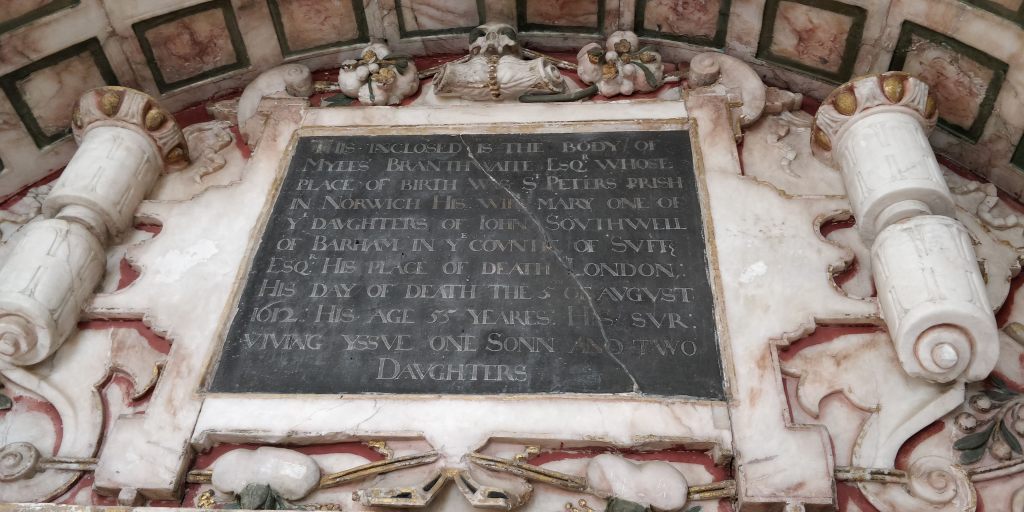 THIS INCLOSED IS THE BODY OF
MYLES BRANTHWAITE ESQR WHOSE
PLACE OF BIRTH WAS ST PETERS PRISH
IN NORWICH HIS WIFE MARY ONE OF
YE DAUGHTERS OF IOHN SOVTHWELL
OF BARHAM IN YE COVNTIE OF SVFF:
ESQR HIS PLACE OF DEATH LONDON:
HIS DAY OF DEATH THE 5 OF AVGVST
1612: HIS AGE 55 YEARES: HIS SVR:
VIVING YSSVE ONE SONN AND TWO
DAVGHTERS